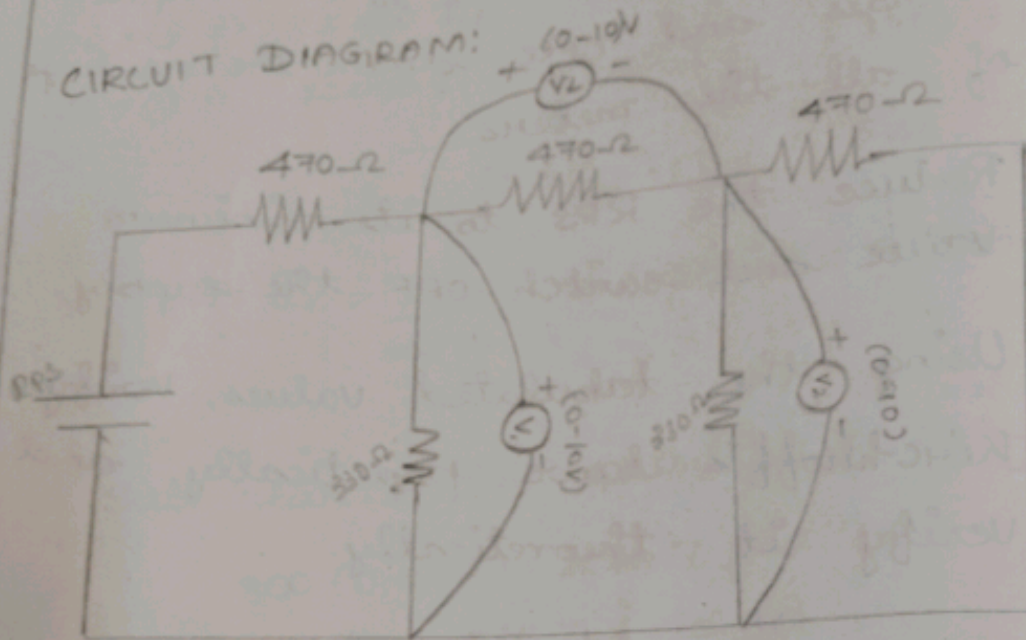 CIRCUIT DIAGRAM:
(0-10)V
+ V2 -
470Ω
470Ω
470Ω
RPS
330Ω
+
V1
-
(0-10V)
330Ω
+
V3
-
(0-10)